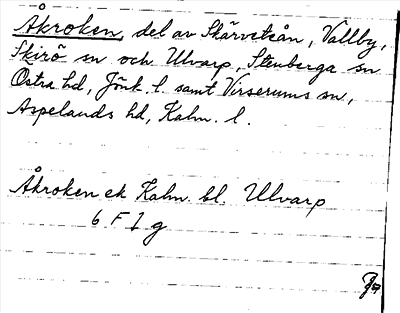 Åkroken, del av Skärveteån, Vallby,
Skirö sn och Ulvarp, Stenberga sn
Östra hd, Jönk. l. samt Virserums sn,
Aspelands hd, Kalm. l.
Åkroken ek Kalm. bl. Ulvarp
6 F 1 g